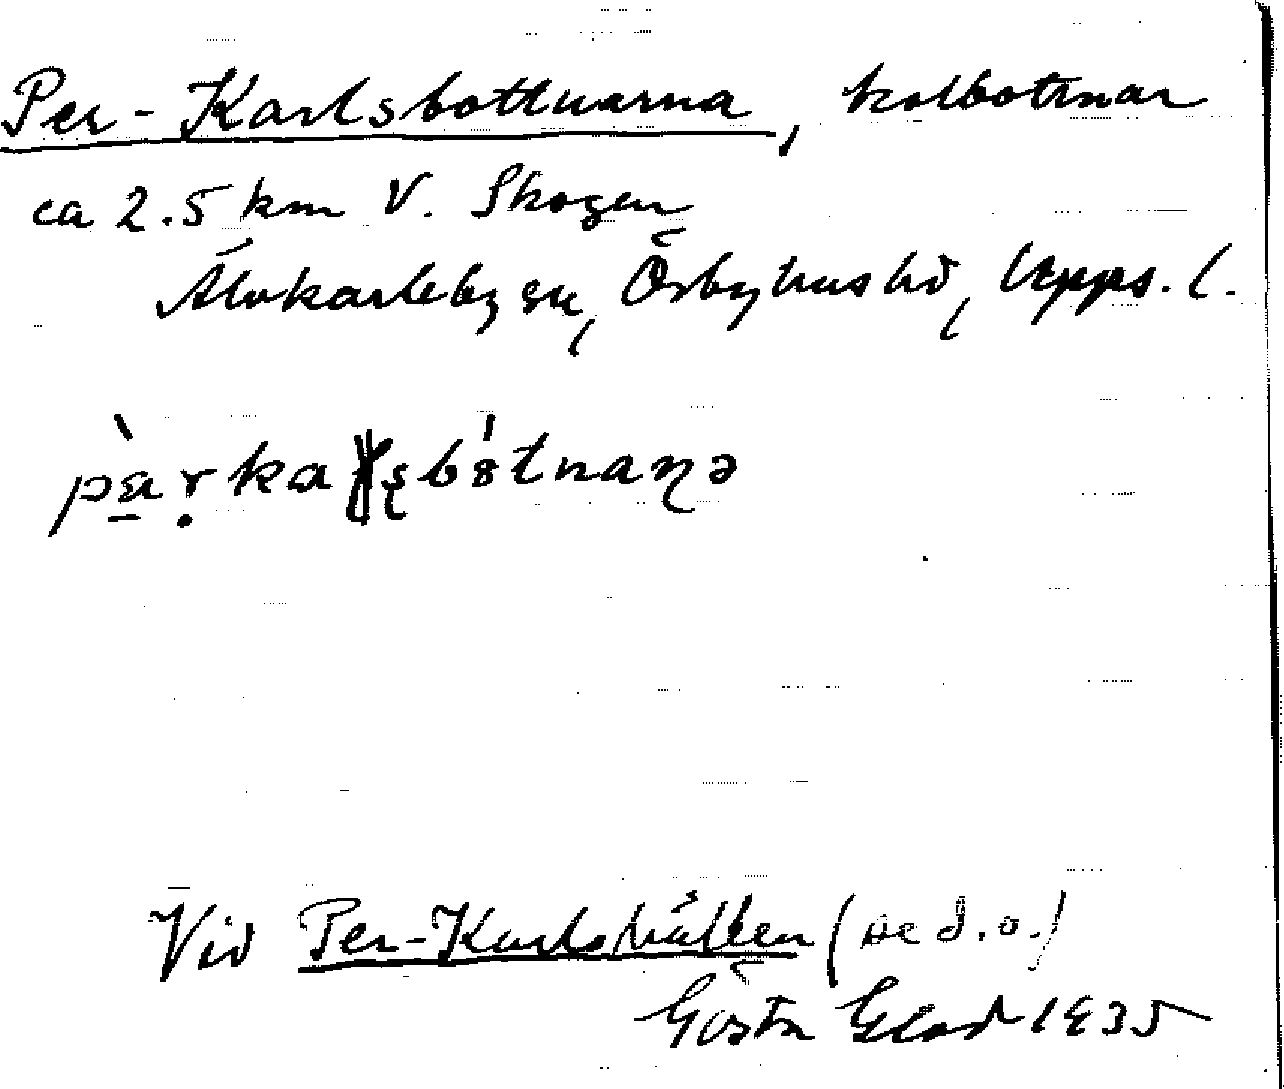 Per-Karlsbottnarna, kolbotnar
ca 2.5 km V. Skogen
Älvkarleby sn, Örbyhus hd, Upps. l.
Vid Per-Karlshällen (se d.o.)
Gösta Glad 1935